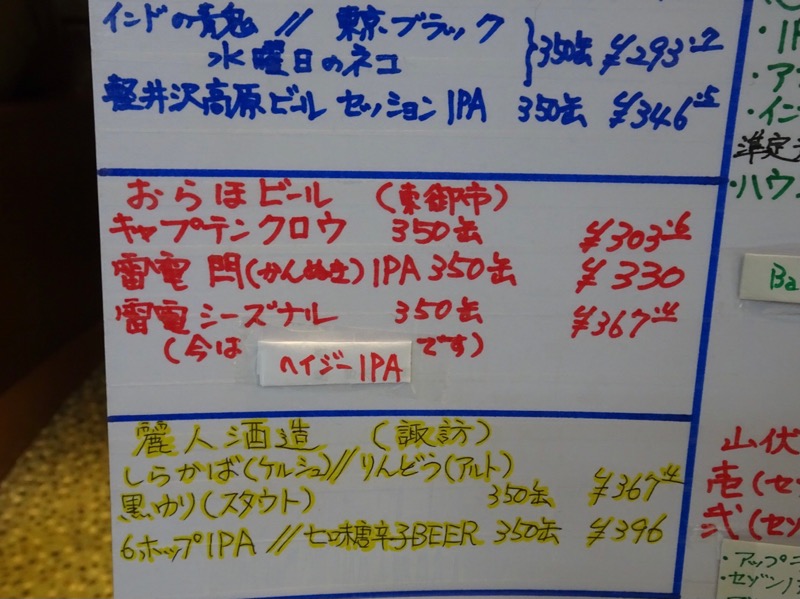 インドの青鬼 // 東京ブラック
水曜日のネコ } 350缶 ¥293.7
軽井沢高原ビール セッションIPA 350缶 ¥346.5
おらほビール (東御市)
キャプテンクロウ 350缶 ¥303.6
雷電 閂(かんぬき)IPA 350缶 ¥330
雷電シーズナル 350缶 ¥367.4
(今は ヘイジーIPA です)
麗人酒造 (諏訪)
しらかば(ケルシュ)//りんどう(アルト)
黒ゆり(スタウト) 350缶 ¥367.4
6ホップIPA // 七味唐辛子BEER 350缶 ¥396
・IP
・ア
・イン
準定
・ハウ
Ba
山伏
壱(セ
弐(セ
・アップ
・セゾン